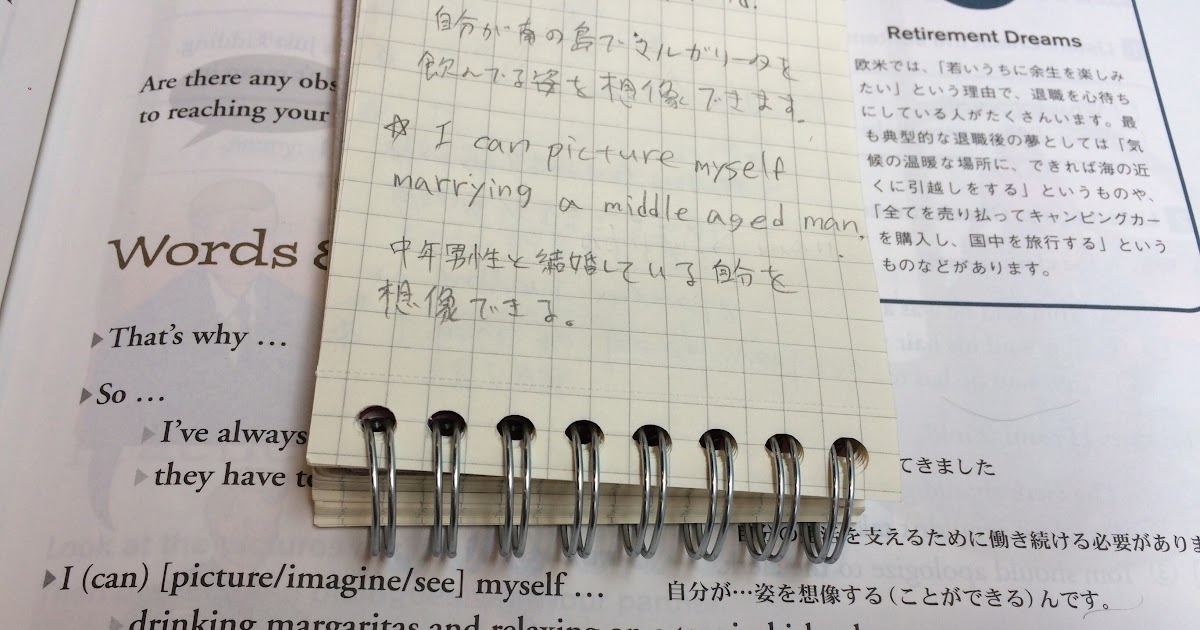 Are there any obs
to reaching your
Words &
That's why …
So …
I've always
they have to
I (can) [picture/imagine/see] myself …
drinking margaritas and relaxing on a tropical island
自分が南の島でマルガリータを
飲んでる姿を想像できます。
☆ I can picture myself
marrying a middle aged man.
中年男性と結婚している自分を
想像できる。
Retirement Dreams
欧米では、「若いうちに余生を楽しみ
たい」という理由で、退職を心待ち
にしている人がたくさんいます。最
も典型的な退職後の夢としては「気
候の温暖な場所に、できれば海の近
くに引越しをする」というものや、
「全てを売り払ってキャンピングカー
を購入し、国中を旅行する」という
ものなどがあります。
てきました
を支えるために働き続ける必要がありま
自分が…姿を想像する(ことができる)んです。